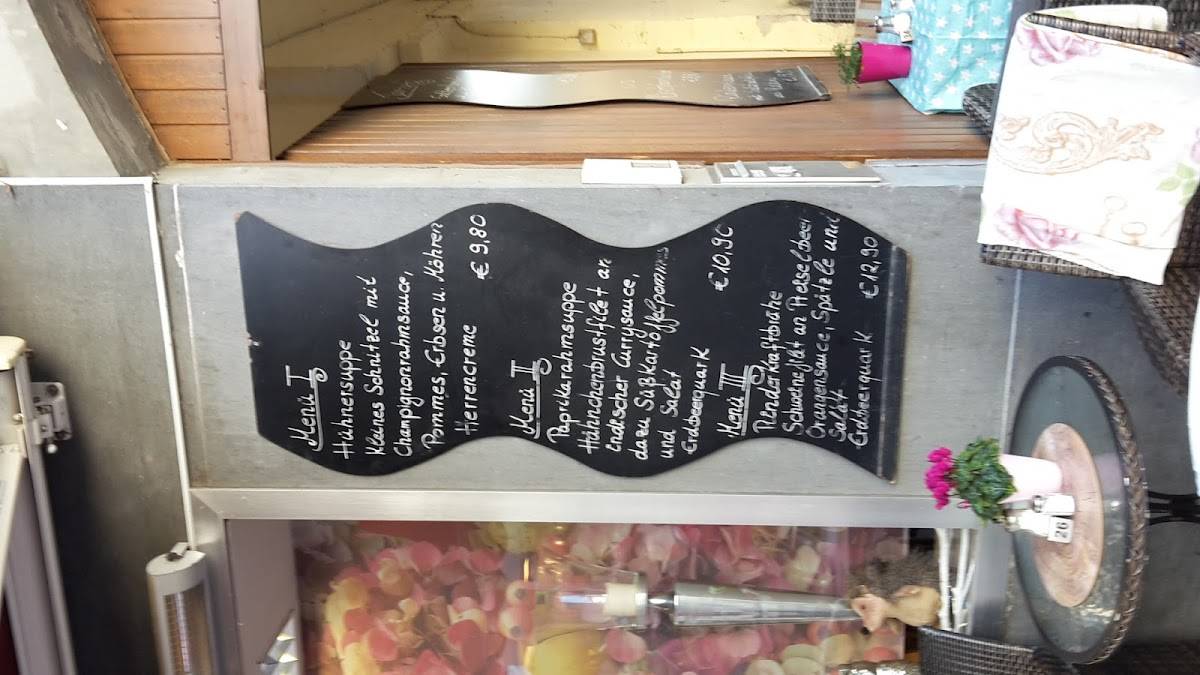 Menü I
Hühnersuppe
Kleines Schnitzel mit
Champignonrahmsauce,
Pommes, Erbsen u. Möhren
Herrencreme € 9,80
Menü II
Paprikarahmsuppe
Hähnchenbrustfilet an
indischer Currysauce,
dazu Süßkartoffelpommes
und Salat
Erdbeerquark €10,90
Menü III
Rinderkraftbrühe
Schweinefilet an Preiselbeer
Orangensauce, Spätzle und
Salat
Erdbeerquark €12,90
26